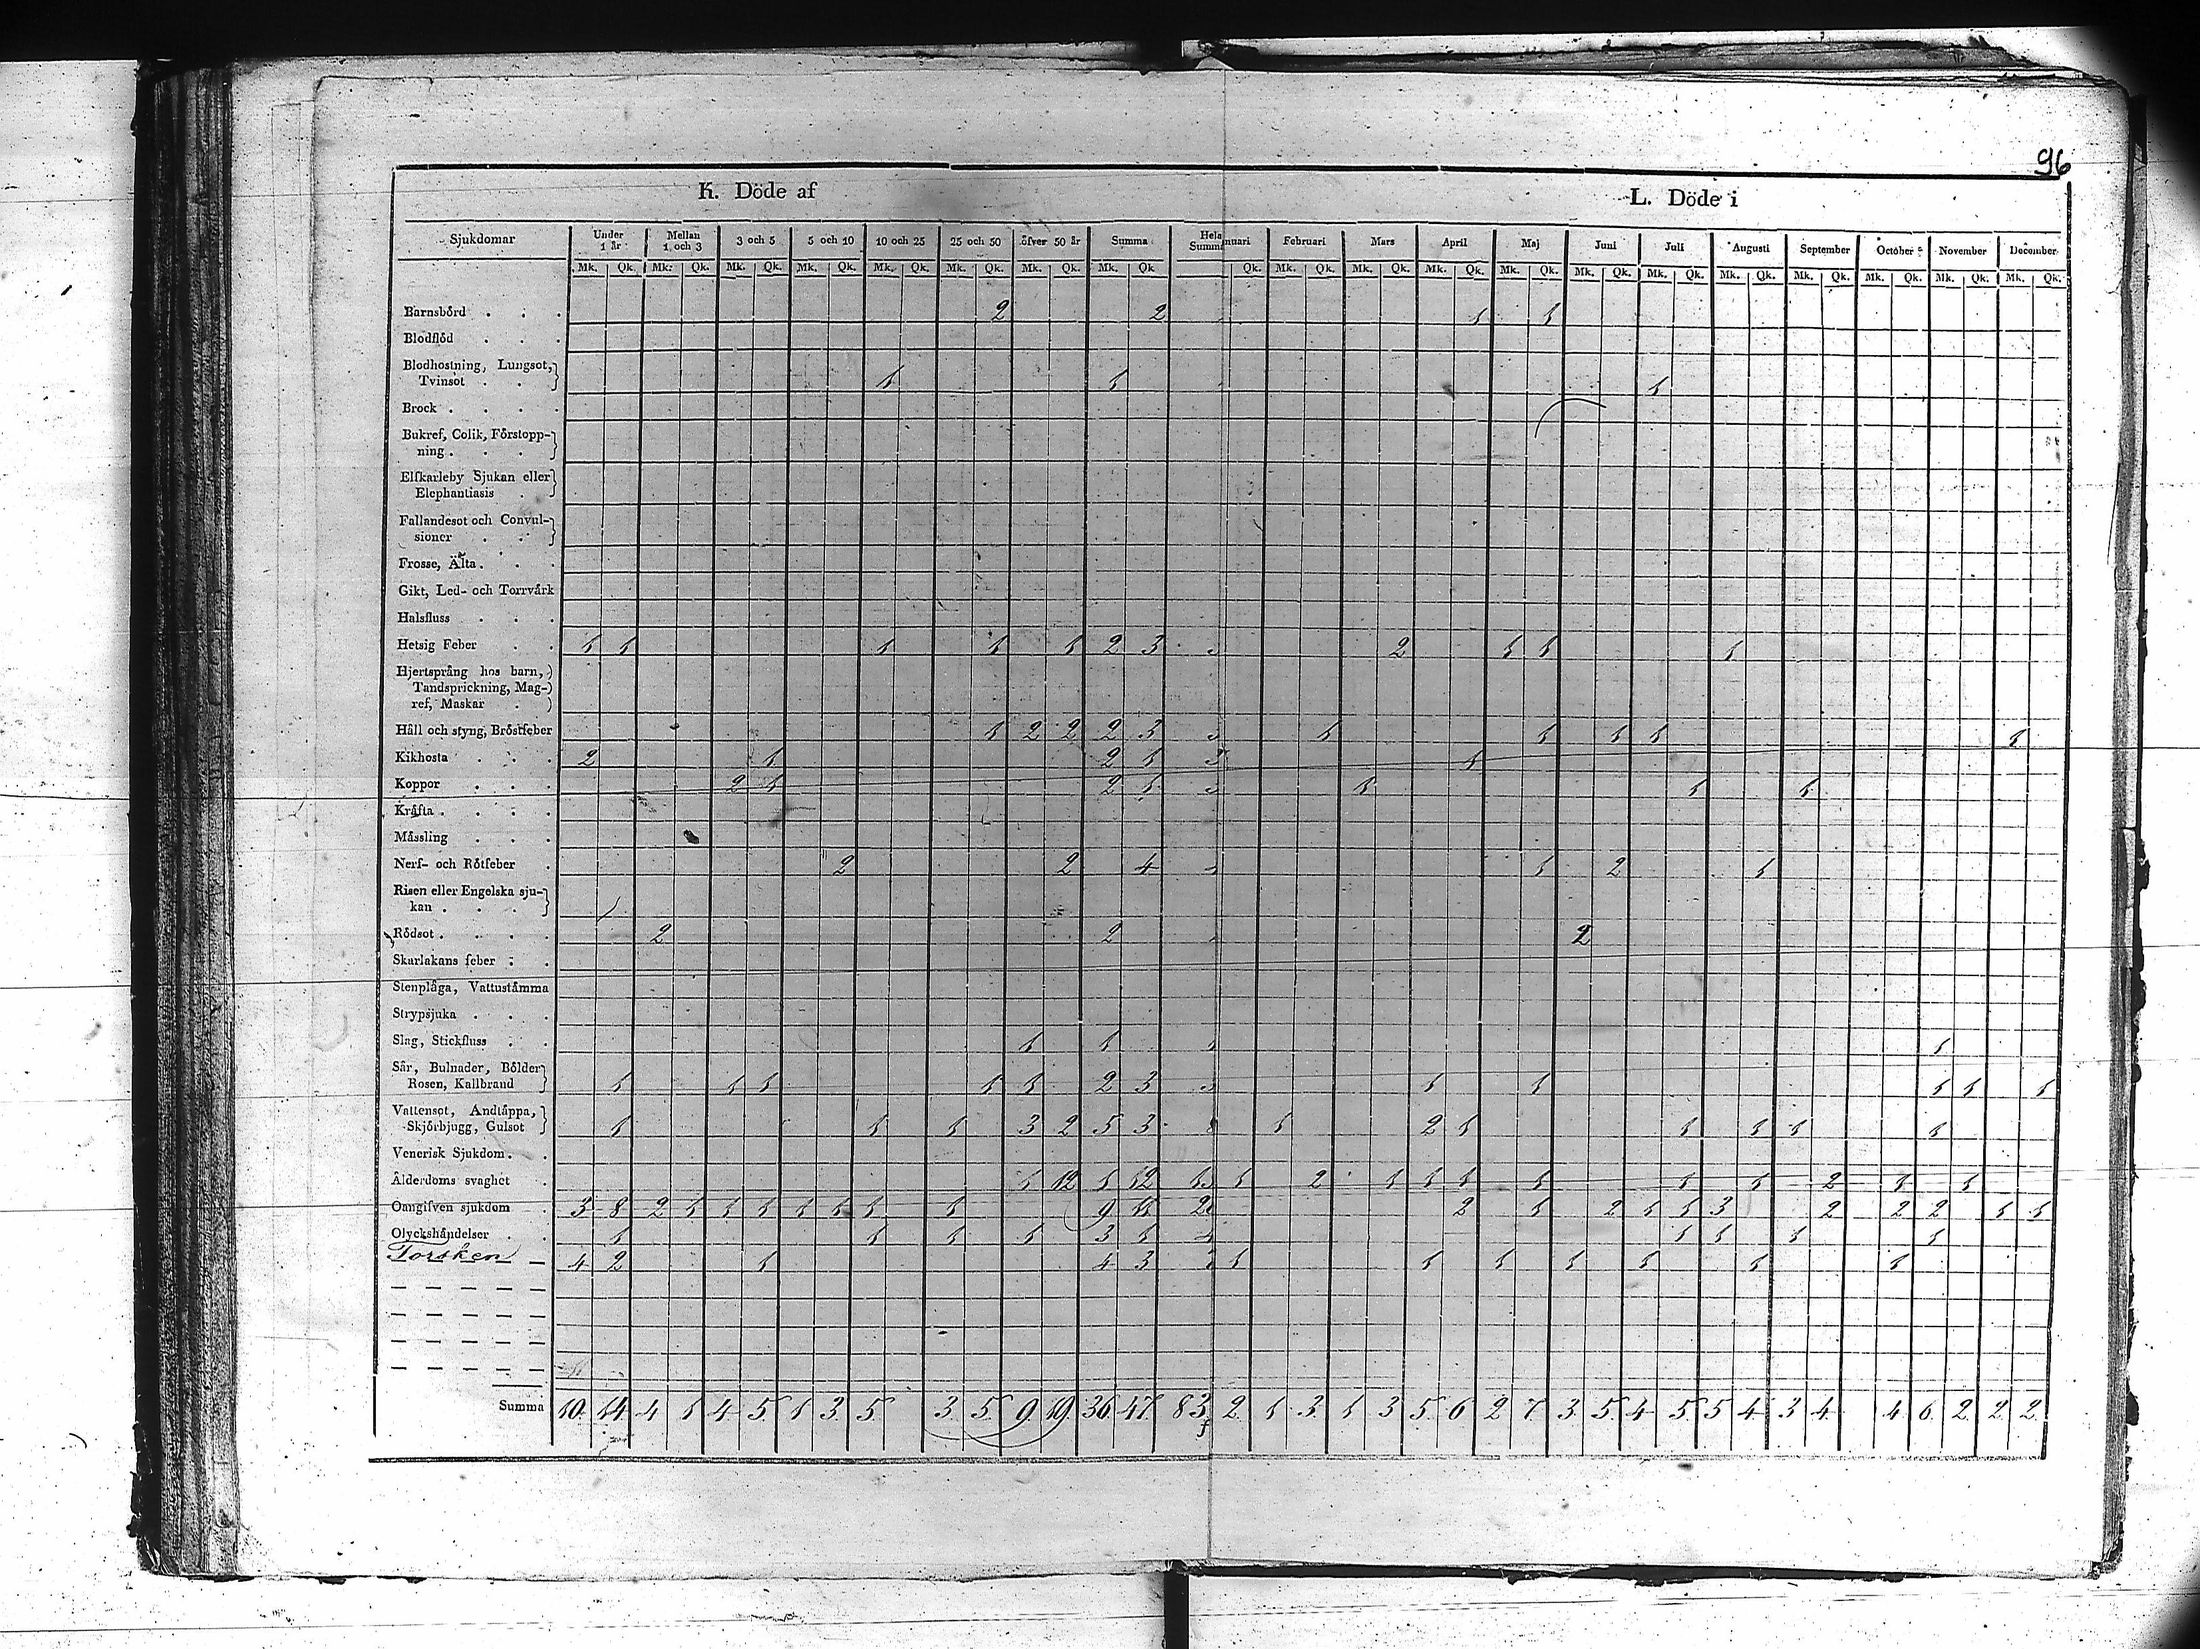 96
K. Döde af L. Döde i
Sjukdomar Under 1 år Mellan 1 och 3 3 och 5 5 och 10 10 och 25 25 och 50 öfver 50 år Summa Hela Summa nuari Februari Mars April Maj Juni Juli Augusti September October November December
Mk. Qk. Mk. Qk. Mk. Qk. Mk. Qk. Mk. Qk. Mk. Qk. Mk. Qk. Mk. Qk. Qk. Mk. Qk. Mk. Qk. Mk. Qk. Mk. Qk. Mk. Qk. Mk. Qk. Mk. Qk. Mk. Qk. Mk. Qk. Mk. Qk. Mk. Qk.
Barnsbörd . . . 2 2 1 1
Blodflöd . . .
Blodhostning, Lungsot,
Tvinsot . . 1 1 1
Brock . . . .
Bukref, Colik, Förstopp-
ning . . .
Elfkarleby Sjukan eller
Elephantiasis .
Fallandesot och Convul-
sioner . .
Frosse, Älta . . .
Gikt, Led- och Torrvärk
Halsfluss . . .
Hetsig Feber . . 1 1 1 1 1 2 3 2 1 1 1
Hjertsprång hos barn,
Tandsprickning, Mag-
ref, Maskar .
Håll och styng, Bröstfeber 1 2 2 2 3 1 1 1 1 1
Kikhosta . . . 2 1 2 1 3 1
Koppor . . . 2 1 2 1 1 1 1
Kräfta . . . .
Mässling . . .
Nerf- och Rötfeber . 2 2 4 1 2 1
Risen eller Engelska sju-
kan . . .
Rödsot . . . . 2 2 2
Skarlakans feber . .
Stenplåga, Vattustämma
Strypsjuka . . .
Slag, Stickfluss . . 1 1 1
Sår, Bulnader, Bölder
Rosen, Kallbrand 1 1 1 1 1 2 3 1 1 1 1 1
Vattensot, Andtäppa,
Skjörbjugg, Gulsot 1 1 1 3 2 5 3 8 1 2 1 1 1 1 1
Venerisk Sjukdom . .
Ålderdoms svaghet . 1 12 1 12 13 1 2 1 1 1 1 1 1 2 1 1
Oangifven sjukdom . 3 8 2 1 1 1 1 1 1 1 9 11 2 1 2 1 1 3 2 2 2 1 1
Olyckshändelser . . 1 1 1 1 3 1 4 1 1 1 1
Torsken 4 2 1 4 3 1 1 1 1 1 1 1
Summa 10 14 4 1 4 5 1 3 5 3 5 9 19 36 47 83 2 1 3 1 3 5 6 2 7 3 5 4 5 5 4 3 4 4 6 2 2 2